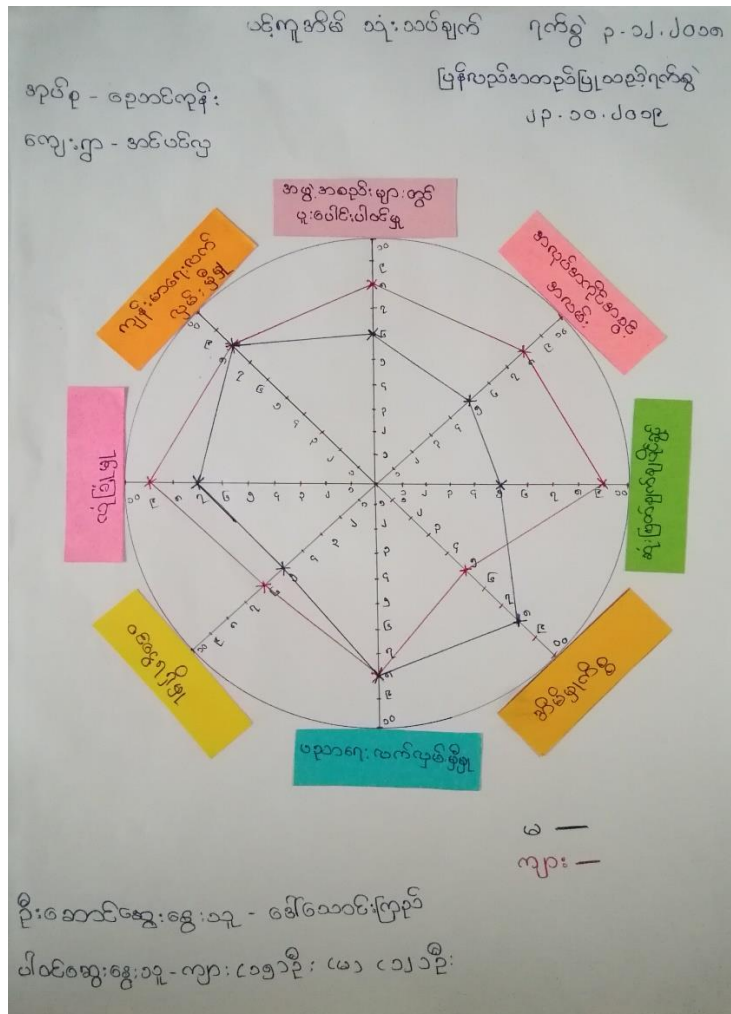 ပင့်ကူအိမ် သုံးသပ်ချက် ရက်စွဲ ၃.၁၂.၂၀၁၈
ပြန်လည်အတည်ပြုသည့်ရက်စွဲ
၂၃.၁၀.၂၀၁၉
အုပ်စု - ညောင်ကုန်း
ကျေးရွာ - အင်ပင်လှ
အဖွဲ့အစည်းများတွင်
ပူးပေါင်းပါဝင်မှု
အလုပ်အကိုင်အခွင့်
အလမ်း
ဆုံးဖြတ်ချက်ချပိုင်ခွင့်
အိမ်မှုကိစ္စ
ပညာရေးလက်လှမ်းမှီမှု
ဝင်ငွေရရှိမှု
လုံခြုံမှု
ကျန်းမာရေးလက်
လှမ်းမှီမှု
မ —
ကျား —
ဦးဆောင်ဆွေးနွေးသူ - ဒေါ်သောင်းကြည်
ပါဝင်ဆွေးနွေးသူ - ကျား (၁၅)ဦး (မ) (၁၂)ဦး